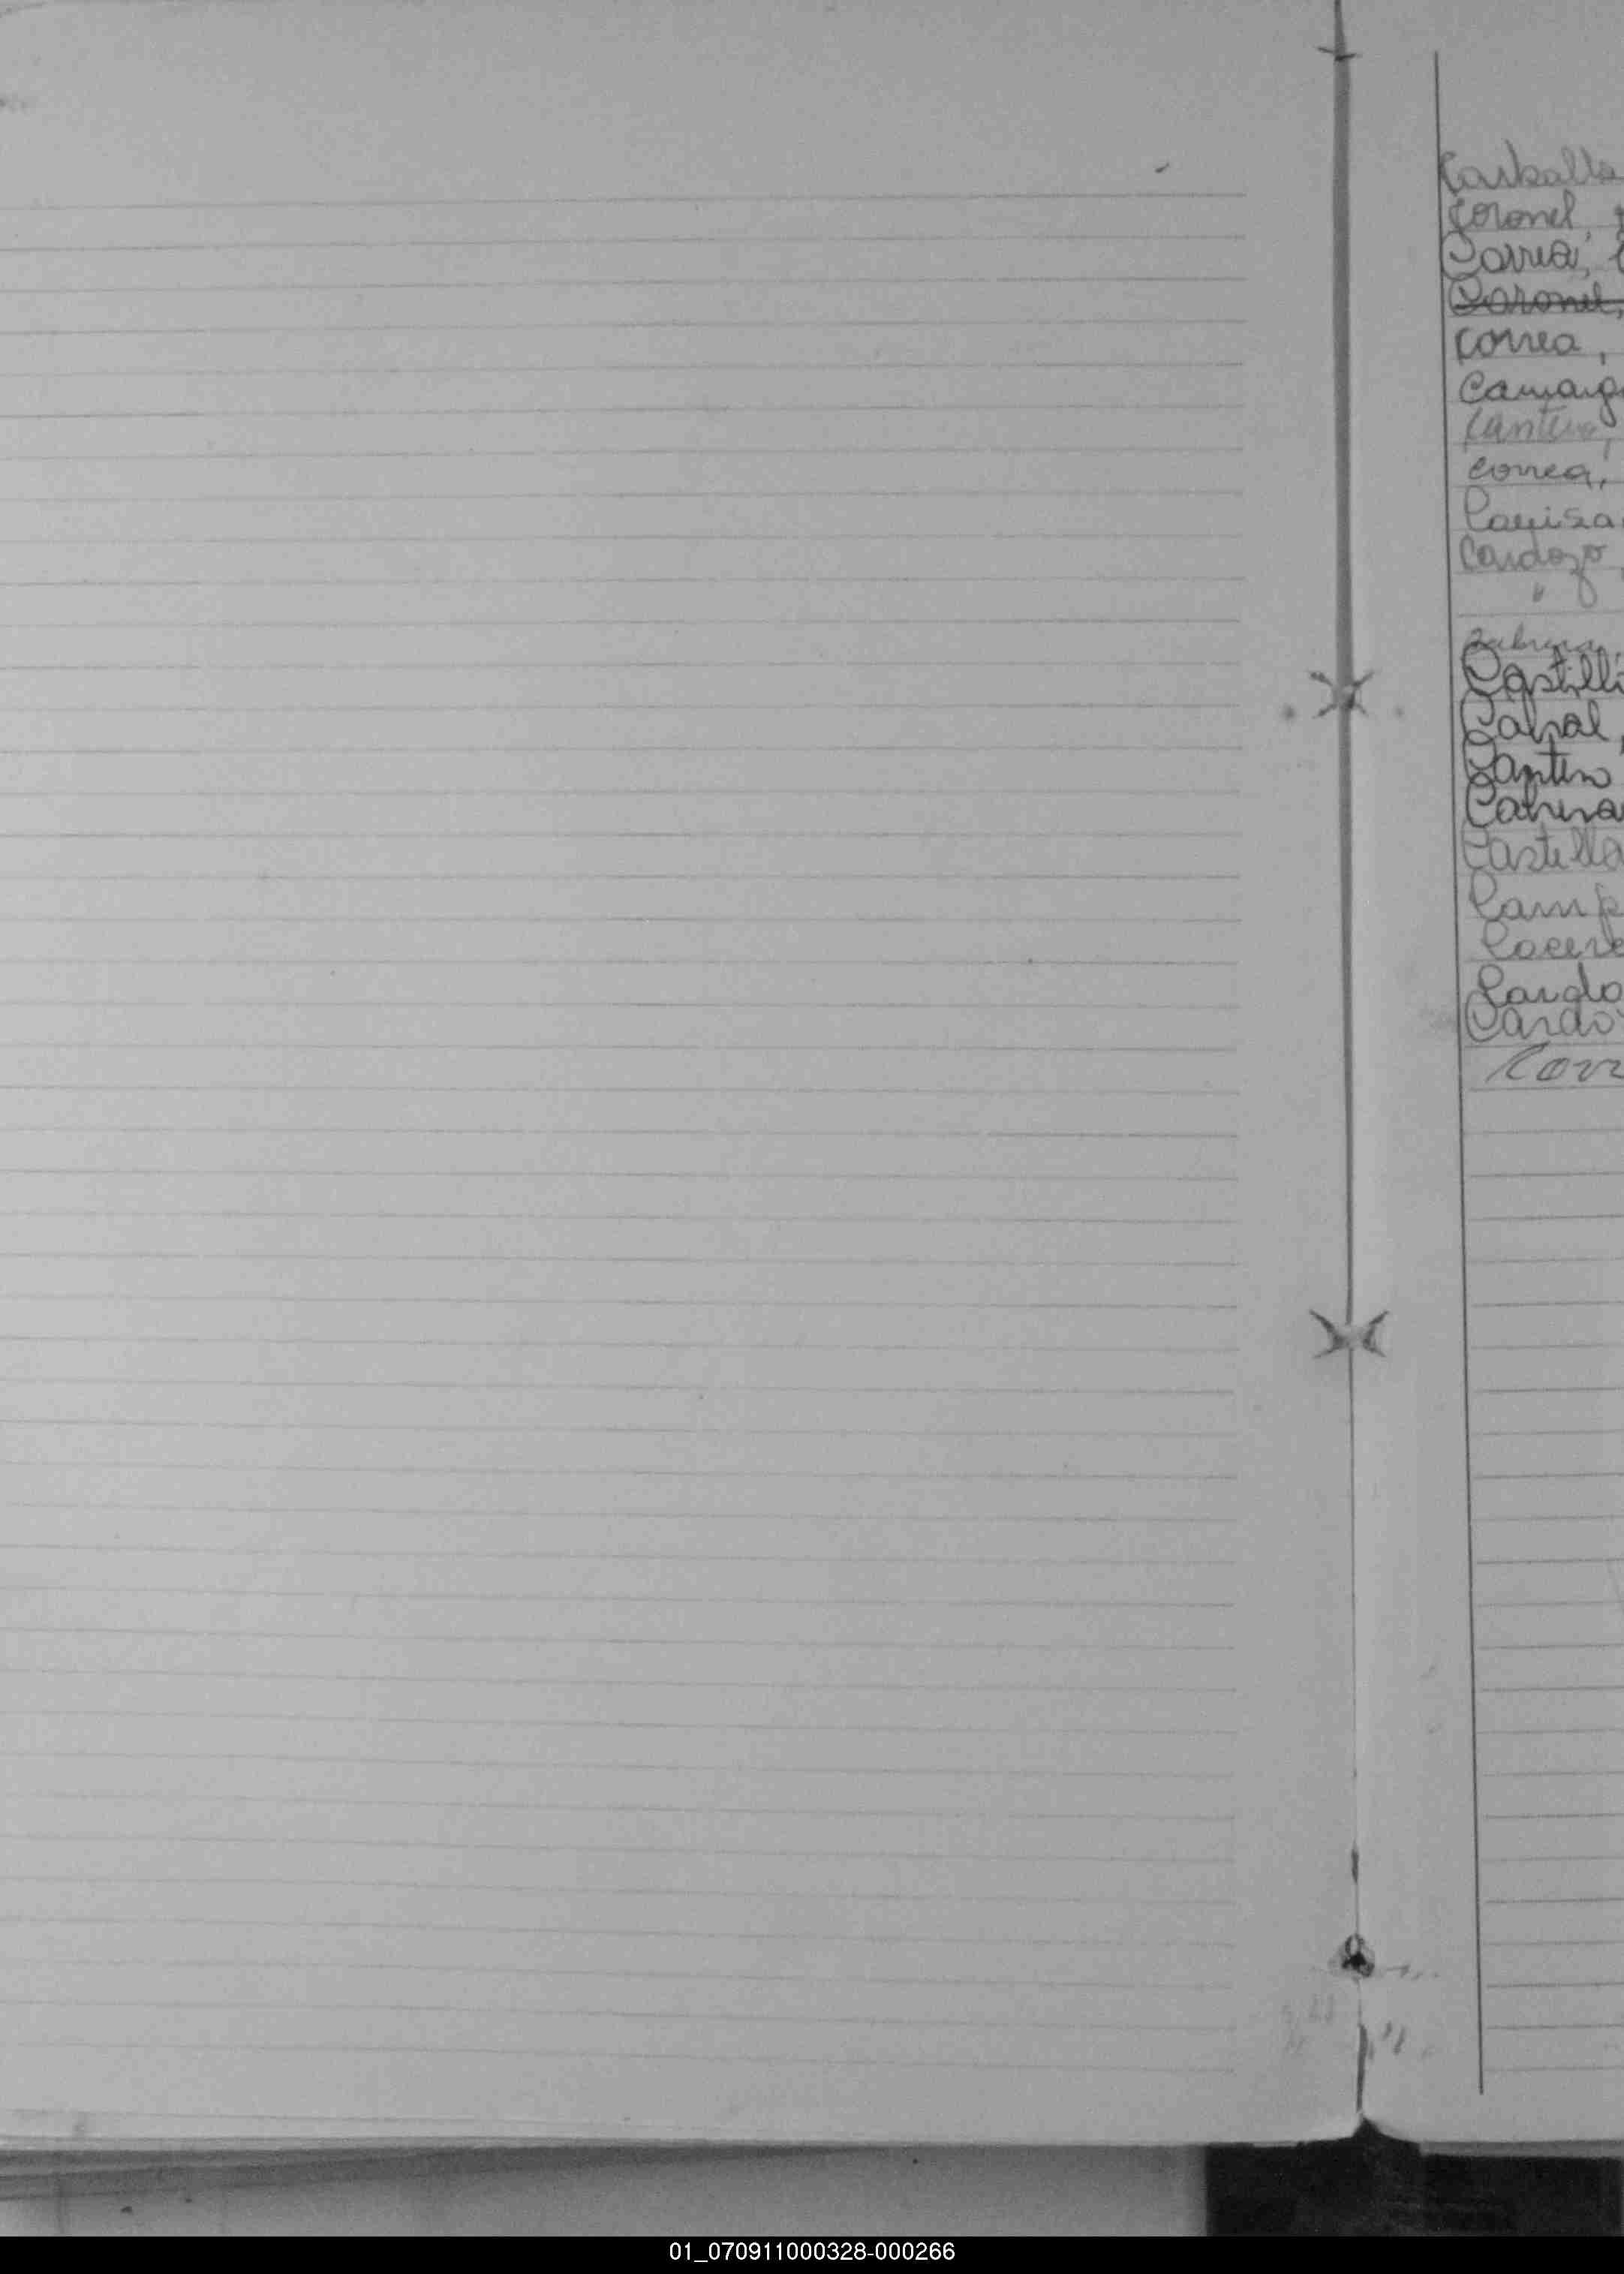 Coronel,
Correa,
Coronel,
Correa,
Camarg
Cantero,
Correa,
Cardozo,
"
Castill
Cabral,
Cantero
Cabrera
Castill
Camp
Cacere
Cardo
Cardo
Corr
01_070911000328-000266